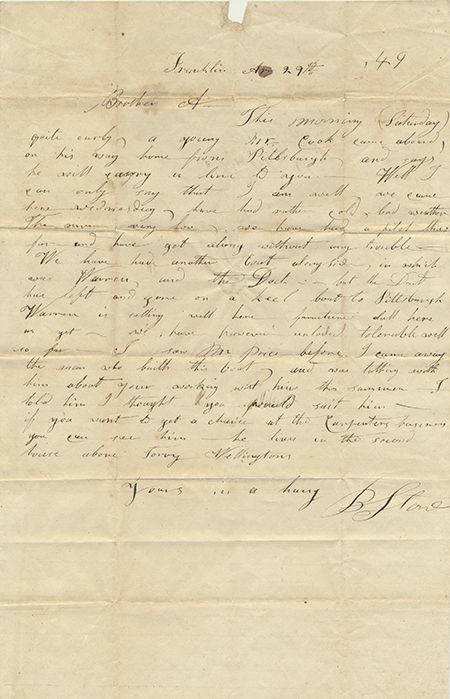 Franklin Ap 29th /49
Brother A—
This morning (Saturday)
quite early, a young Mr. Cook came aboard,
on his way home from Pittsburgh, and says
he will carry a line to you — Well I
can only say that I am well we came
here wednesday, have had rather cold, bad weather
The river very low, we have had a pilot thus
far and have got along without any trouble —
We have had another boat alongside in which
was Warren, and the Doct — but the Doct
has left and gone on a keel boat to Pittsburgh
Warren is selling well here furniture dull here
as yet — we have however unloded tolerable well
so far I saw Mr Price before I came away
the man who built this boat, and was talking with
him about your working with him this summer I
told him I thought you would suit him —
if you want to get a chance at the Carpenters business
you can see him he lives in the second
house above Terry Wellingtons
Yours in a hurry B Stone